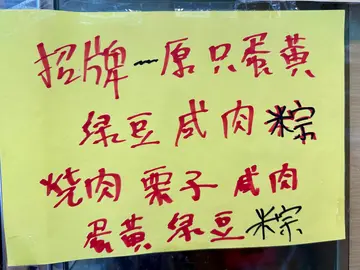 招牌~原只蛋黄
绿豆咸肉粽
烧肉栗子咸肉
蛋黄绿豆粽